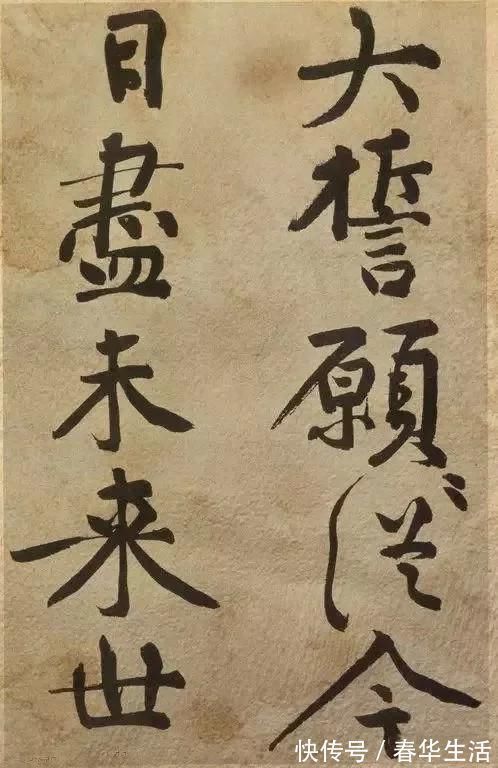 大誓願從今
日盡未来世
快传号 / 春华生活